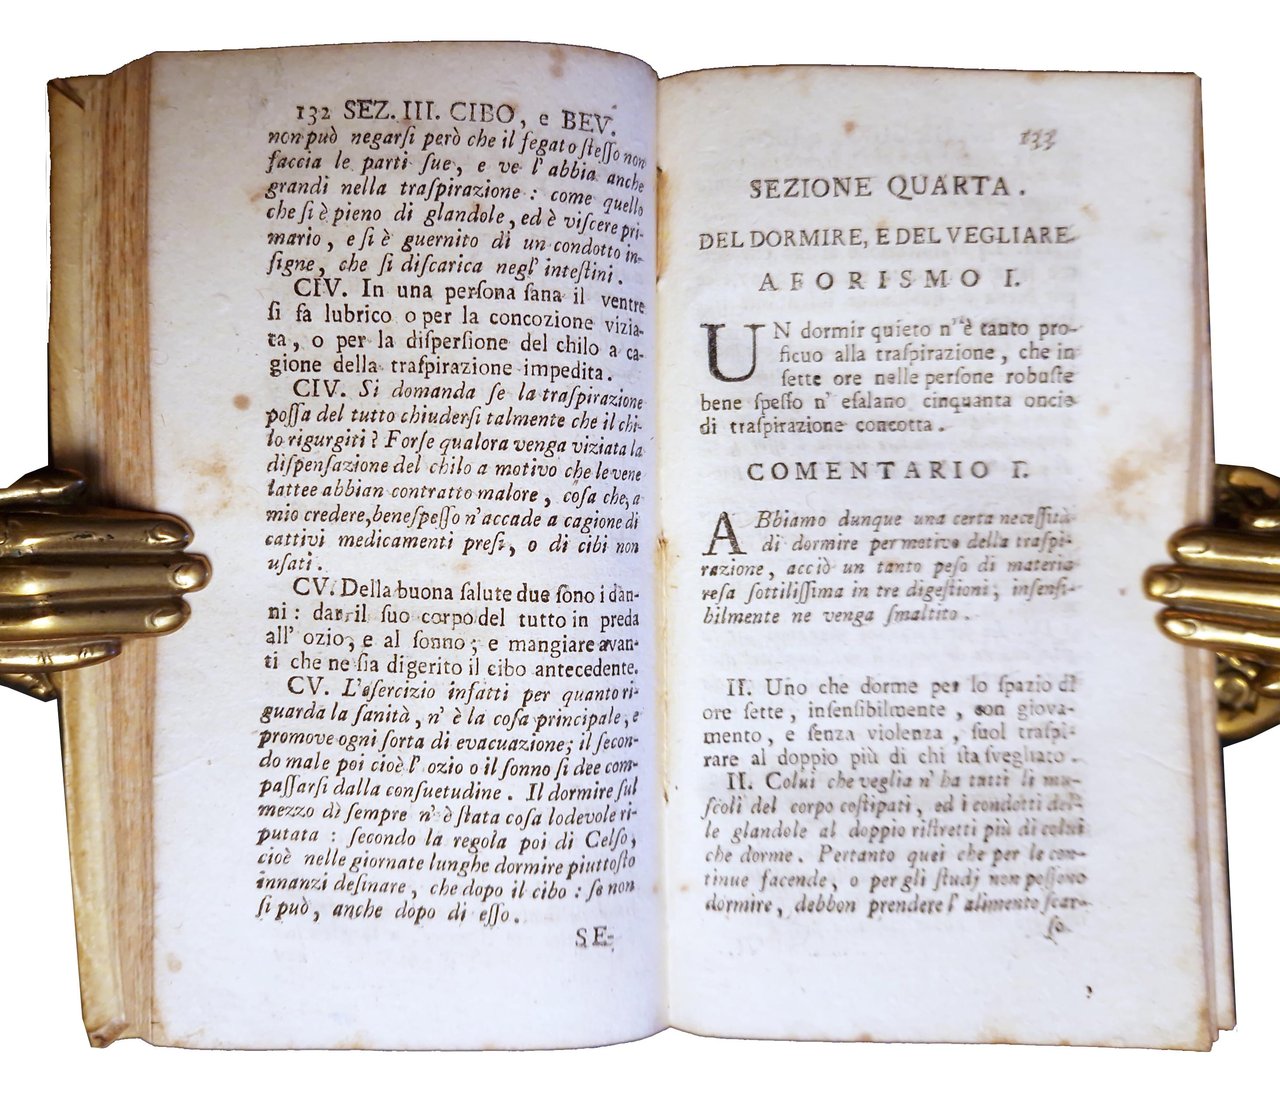 132 SEZ. III. CIBO, e BEV.
non può negarsi però che il fegato ſteſſo non
faccia le parti ſue, e ve l'abbia anche
grandi nella traſpirazione: come quello
che ſi è pieno di glandole, ed è viſcere pri-
mario, e ſi è guernito di un condotto in-
ſigne, che ſi diſcarica negl'inteſtini.
CIV. In una perſona ſana il ventre
ſi fa lubrico o per la concozione vizia-
ta, o per la diſperſione del chilo a ca-
gione della traſpirazione impedita.
CIV. Si domanda ſe la traſpirazione
poſſa del tutto chiuderſi talmente che il chi-
lo rigurgiti? Forſe qualora venga viziata la
diſpenſazione del chilo a motivo che le vene
lattee abbian contratto malore, coſa che, a
mio credere, beneſpeſſo n'accade a cagione di
cattivi medicamenti preſi, o di cibi non
uſati.
CV. Della buona ſalute due ſono i dan-
ni: dar il ſuo corpo del tutto in preda
all' ozio, e al ſonno; e mangiare avan-
ti che ne ſia digerito il cibo antecedente.
CV. L'eſercizio infatti per quanto ri-
guarda la ſanità, n'è la coſa principale, e
promove ogni ſorta di evacuazione; il ſecon-
do male poi cioè l'ozio o il ſonno ſi dee com-
paſſarſi dalla conſuetudine. Il dormire ſul
mezzo dì ſempre n'è ſtata coſa lodevole ri-
putata: ſecondo la regola poi di Celſo,
cioè nelle giornate lunghe dormire piuttoſto
innanzi deſinare, che dopo il cibo: ſe non
ſi può, anche dopo di eſſo.
SE-
133
SEZIONE QUARTA.
DEL DORMIRE, E DEL VEGLIARE
AFORISMO I.
UN dormir quieto n'è tanto pro-
ficuo alla traſpirazione, che in
ſette ore nelle perſone robuſte
bene ſpeſſo n' eſalano cinquanta oncie
di traſpirazione concotta.
COMENTARIO I.
ABbiamo dunque una certa neceſſità
di dormire per motivo della traſpi-
razione, acciò un tanto peſo di materia
reſa ſottiliſſima in tre digeſtioni, inſenſi-
bilmente ne venga ſmaltito.
II. Uno che dorme per lo ſpazio di
ore ſette, inſenſibilmente, con giova-
mento, e ſenza violenza, ſuol traſpi-
rare al doppio più di chi ſta ſvegliato.
II. Colui che veglia n' ha tutti li mu-
ſcoli del corpo coſtipati, ed i condotti del-
le glandole al doppio riſtretti più di colui
che dorme. Pertanto quei che per le con-
tinue facende, o per gli ſtudj non poſſono
dormire, debbon prendere l'alimento ſcar-
ſo.